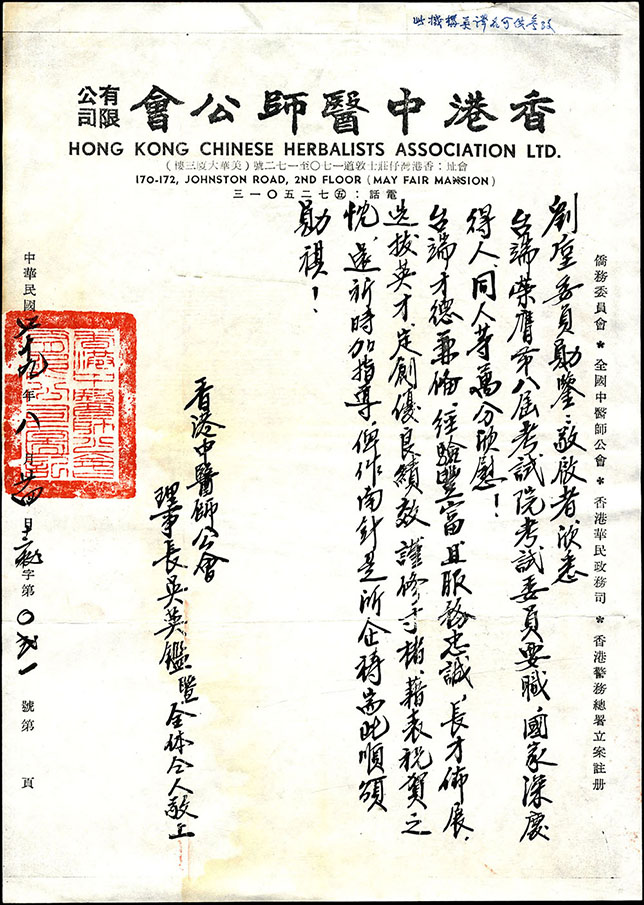 香港中醫師公會有限公司
HONG KONG CHINESE HERBALISTS ASSOCIATION LTD.
會址：香港灣仔莊士敦道一七〇至一七二號（美華大廈三樓）
170-172, JOHNSTON ROAD, 2ND FLOOR (MAY FAIR MANSION)
電話：五七二五〇一三
僑務委員會 * 全國中醫師公會 * 香港華民政務司 * 香港警務總署立案註冊
劉 委員勛鑒：敬啟者，欣悉
台端榮膺第八屆考試院考試委員要職，國家深慶
得人，同人等萬分欣慰！
台端才德兼備，經驗豐富，且服務忠誠，長才佈展，
選拔英才，定創優良績效，謹修寸楮，藉表祝賀之
忱，還祈時加指導，俾作南針，是所企禱，耑此順頌
勛祺！
香港中醫師公會
理事長吳英鑑暨全体仝人敬上
中華民國 年八月 日 字第 號第 頁